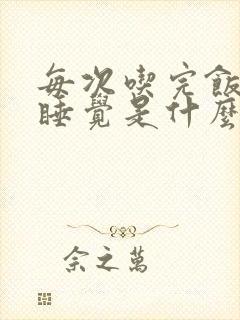 每次喫完飯
睡覺是什麼
佘之萬